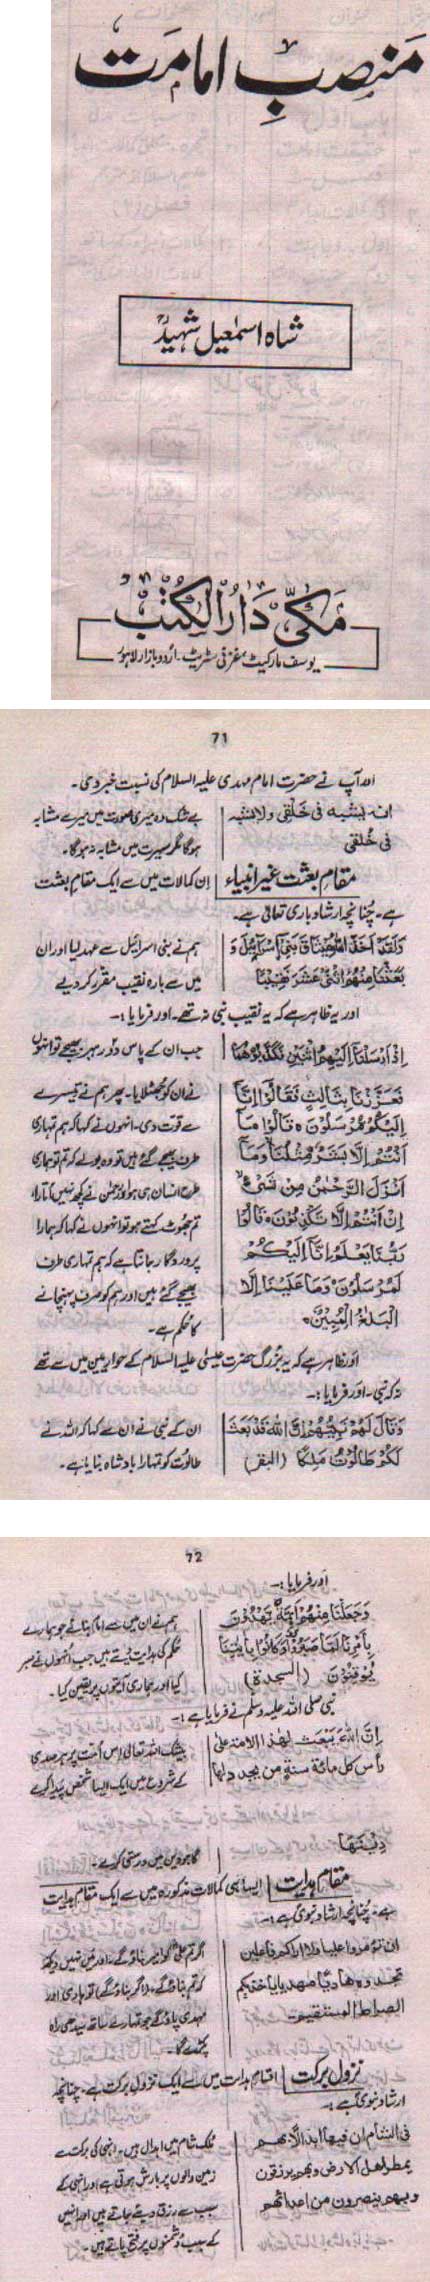 منصبِ امامت
شاہ اسمٰعیل شہیدؒ
مکّی دَارُالکُتب
یوسف مارکیٹ، غزنی سٹریٹ۔ اُردو بازار لاہور
71
آپ نے حضرت امام مہدی علیہ السلام کی نسبت خبر دی۔
یشبہ فی خَلقی ولا یشبہ
فی خُلقی
بے شک وہ میری صورت میں میرے مشابہ
ہوگا مگر سیرت میں مشابہ نہ ہوگا۔
مقامِ بعثت غیر انبیاء
اِن کمالات میں سے ایک مقامِ بعثت
ہے۔ چنانچہ ارشاد باری تعالیٰ ہے۔
وَلَقَدْ اَخَذَ اللهُ مِيْثَاقَ بَنِيْ اِسْرَآئِيْلَ وَ
بَعَثْنَا مِنْهُمُ اثْنَيْ عَشَرَ نَقِيْبًا
ہم نے بنی اسرائیل سے عہد لیا اور ان
میں سے بارہ نقیب مقرر کر دیے
اور یہ ظاہر ہے کہ یہ نقیب نبی نہ تھے۔ اور فرمایا :۔
اِذْ اَرْسَلْنَا اِلَيْهِمُ اثْنَيْنِ فَكَذَّبُوْهُمَا
فَعَزَّزْنَا بِثَالِثٍ فَقَالُوْا اِنَّا
اِلَيْكُمْ مُّرْسَلُوْنَ ہ قَالُوْا مَا
اَنْتُمْ اِلَّا بَشَرٌ مِّثْلُنَا وَمَا
اَنْزَلَ الرَّحْمٰنُ مِنْ شَيْءٍ
اِنْ اَنْتُمْ اِلَّا تَكْذِبُوْنَ ہ قَالُوْا
رَبُّنَا يَعْلَمُ اِنَّا اِلَيْكُمْ
لَمُرْسَلُوْنَ وَمَا عَلَيْنَا اِلَّا
الْبَلَاغُ الْمُبِيْنُ ہ
جب ان کے پاس دو رہبر بھیجے تو انہوں
نے ان کو جھٹلایا۔ پھر ہم نے تیسرے
سے قوت دی۔ انہوں نے کہا کہ ہم تمہاری
طرف بھیجے گئے ہیں تو وہ بولے کہ تم تو ہماری
طرح انسان ہی ہو اور رحمٰن نے کچھ نہیں اُتارا،
تم جھوٹ کہتے ہو تو انہوں نے کہا کہ ہمارا
پروردگار جانتا ہے کہ ہم تمہاری طرف
بھیجے گئے ہیں اور ہم کو صرف پہنچانے
کا حُکم ہے۔
اور ظاہر ہے کہ یہ بزرگ حضرت عیسیٰ علیہ السلام کے حوارییین میں سے تھے
نہ کہ نبی۔ اور فرمایا :۔
وَقَالَ لَهُمْ نَبِيُّهُمْ اِنَّ اللهَ قَدْ بَعَثَ
لَكُمْ طَالُوْتَ مَلِكًا (البقر)
ان کے نبی نے ان سے کہا کہ اللہ نے
طالوت کو تمہارا بادشاہ بنایا ہے۔
72
اور فرمایا :۔
وَجَعَلْنَا مِنْهُمْ اَئِمَّةً يَّهْدُوْنَ
بِاَمْرِنَا لَمَّا صَبَرُوْا وَكَانُوْا بِاٰيٰتِنَا
يُوْقِنُوْنَ (السجدة)
ہم نے ان میں سے امام بنائے جو ہمارے
حُکم کی ہدایت دیتے ہیں جب اُنھوں نے صبر
کیا اور ہماری آیتوں پر یقین کیا۔
نبی صلی اللہ علیہ وسلم نے فرمایا ہے :۔
اِنَّ اللهَ يَبْعَثُ لِهٰذَا الامة على
رأس كل مائة سنة من يجدد لها
دِيْنَهَا
بیشک اللہ تعالیٰ اس اُمت پر ہر صدی
کے شروع میں ایک ایسا شخص پیدا کرے
گا جو دین میں درستی کرے۔
مقامِ ہدایت
ایسا ہی کمالات مذکورہ میں سے ایک مقامِ ہدایت
ہے۔ چنانچہ ارشاد نبویؐ ہے :۔
ان تؤمروا عليا ولا اراكم فاعلين
تجدوه هاديا مهديا ياخذ بكم
الصراط المستقيم۔
اگر تم علیؓ کو امیر بناؤ گے، اور میں نہیں دیکھتا
کہ تم بناؤ گے، (اگر بناؤ گے) تو ہادی اور
مہدی پاؤ گے جو تمہارے ساتھ سیدھی راہ
پکڑے گا۔
نزولِ برکت
اقسامِ ہدایت میں سے ایک نزولِ برکت ہے۔ چنانچہ
ارشادِ نبویؐ ہے :۔
فی الشام ان فيها ابدالا بهم
يمطر اهل الارض وبهم يرزقون
وبهم ينصرون من اعدائهم
ملک شام میں ابدال ہیں۔ انہی کی برکت سے
زمین والوں پر بارش ہوتی ہے اور انہی کے
سبب سے رزق دیئے جاتے ہیں اور انہیں
کے سبب دُشمنوں پر فتح پاتے ہیں۔